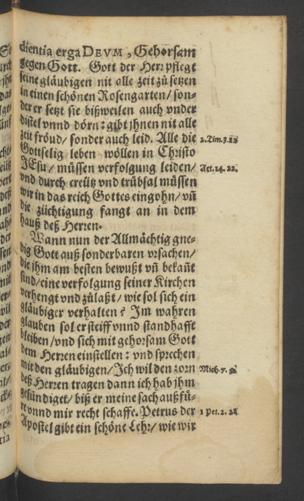 dientia erga DEVM, Gehorsam
gegen Gott. Gott der Herr pflegt
seine gläubigen nit alle zeit zů setzen
in einen schönen Rosengarten/ son-
der er setzt sie bißweilen auch vnder
distel vnnd dörn: gibt jhnen nit alle
zeit fröud/ sonder auch leid. Alle die 2. Tim. 3. 12
Gottselig leben wöllen in Christo
JEsu/ müssen verfolgung leiden/ Act. 14. 22.
vnd durch creütz vnd trübsal müssen
wir in das reich Gottes eingohn/ vñ
die züchtigung fangt an in dem
hauß deß Herren.
Wann nun der Allmächtig gne-
dig Gott auß sonderbaren vrsachen/
die ihm am besten bewußt vñ bekañt
sind/ eine verfolgung seiner Kirchen
verhengt vnd zůlaßt/ wie sol sich ein
gläubiger verhalten? Im wahren
glauben sol er steiff vnnd standhafft
bleiben/ vnd sich mit gehorsam Gott
dem Herren einstellen: vnd sprechen
mit den gläubigen/ Ich wil den zorn Mich. 7. 9.
deß Herren tragen dann ich hab ihm
gesündiget/ biß er meine sach außfü-
re vnnd mir recht schaffe. Petrus der 1 Pet. 2. 21
Apostel gibt ein schöne Lehr/ wie wir